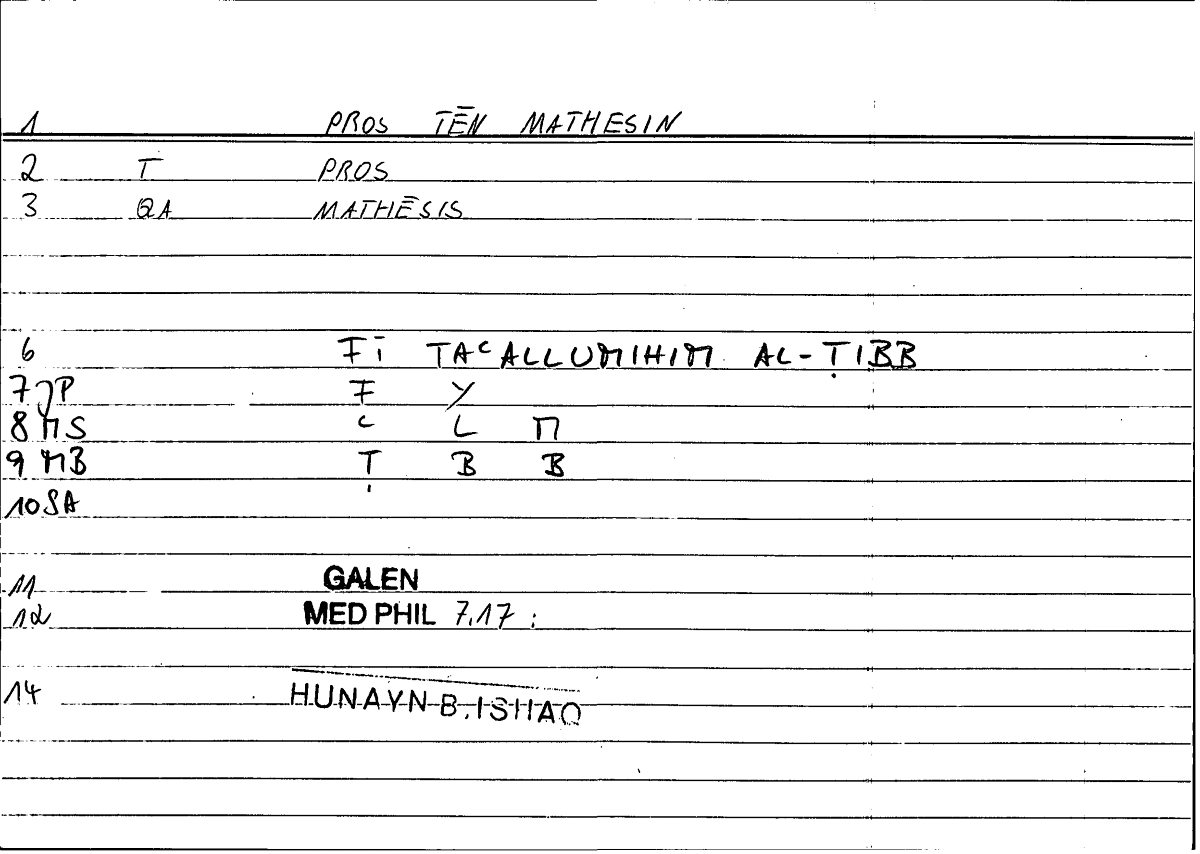 1 PROS TĒN MATHESIN
2 T PROS
3 QA MATHĒSIS
6 FĪ TAᶜALLUMIHIM AL-ṬIBB
7 JP F Y
8 MS ᶜ L M
9 MB Ṭ B B
10 SA
11 GALEN
12 MED PHIL 7.17 :
14 HUNAYN B. ISHAQ